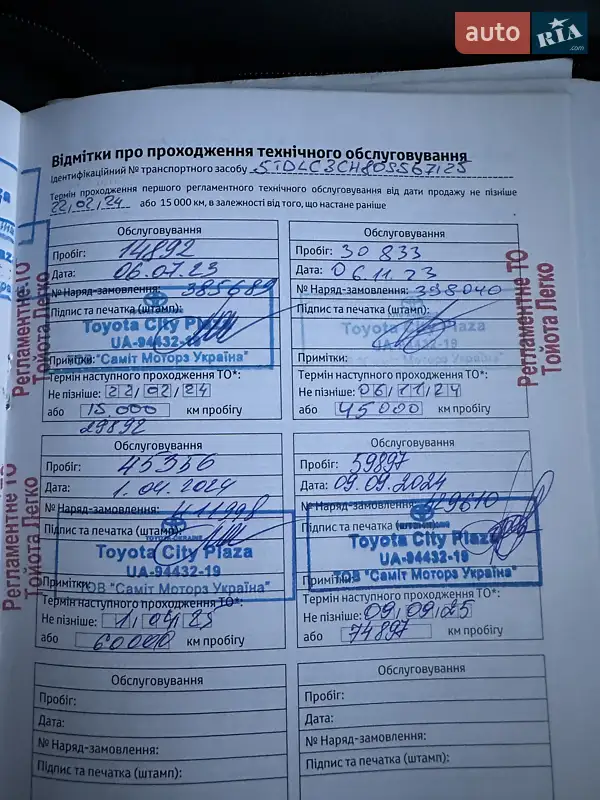 auto RIA.com
Відмітки про проходження технічного обслуговування
Ідентифікаційний № транспортного засобу 5TDLC3CH80S567125
Термін проходження першого регламентного технічного обслуговування від дати продажу не пізніше
22/02/24 або 15 000 км, в залежності від того, що настане раніше
Обслуговування
Пробіг: 14892
Дата: 06.07.23
№ Наряд-замовлення: 385689
Підпис та печатка (штамп):
Toyota City Plaza
UA-94432-19
"Саміт Моторз Україна"
Примітки:
Термін наступного проходження ТО*:
Не пізніше: 22/02/24
або 15.000 км пробігу
29892
Обслуговування
Пробіг: 30 833
Дата: 06.11.23
№ Наряд-замовлення: 398040
Підпис та печатка (штамп):
Toyota City Plaza
UA-94432-19
Саміт Моторз Україна"
Примітки:
Термін наступного проходження ТО*:
Не пізніше: 06/11/24
або 45000 км пробігу
Регламентне ТО
Тойота Легко
Регламентне ТО
Тойота Легко
Обслуговування
Пробіг: 45356
Дата: 1.04.2024
№ Наряд-замовлення: 411998
Підпис та печатка (штамп):
Toyota City Plaza
UA-94432-19
ТОВ "Саміт Моторз Україна"
Примітки:
Термін наступного проходження ТО*:
Не пізніше: 1/04/25
або 60000 км пробігу
Обслуговування
Пробіг: 59897
Дата: 09.09.2024
№ Наряд-замовлення: 429610
Підпис та печатка (штамп):
Toyota City Plaza
UA-94432-19
ТОВ "Саміт Моторз Україна"
Примітки:
Термін наступного проходження ТО*:
Не пізніше: 09/09/25
або 74897 км пробігу
Регламентне ТО
Тойота Легко
Обслуговування
Пробіг:
Дата:
№ Наряд-замовлення:
Підпис та печатка (штамп):
Обслуговування
Пробіг:
Дата:
№ Наряд-замовлення:
Підпис та печатка (штамп):